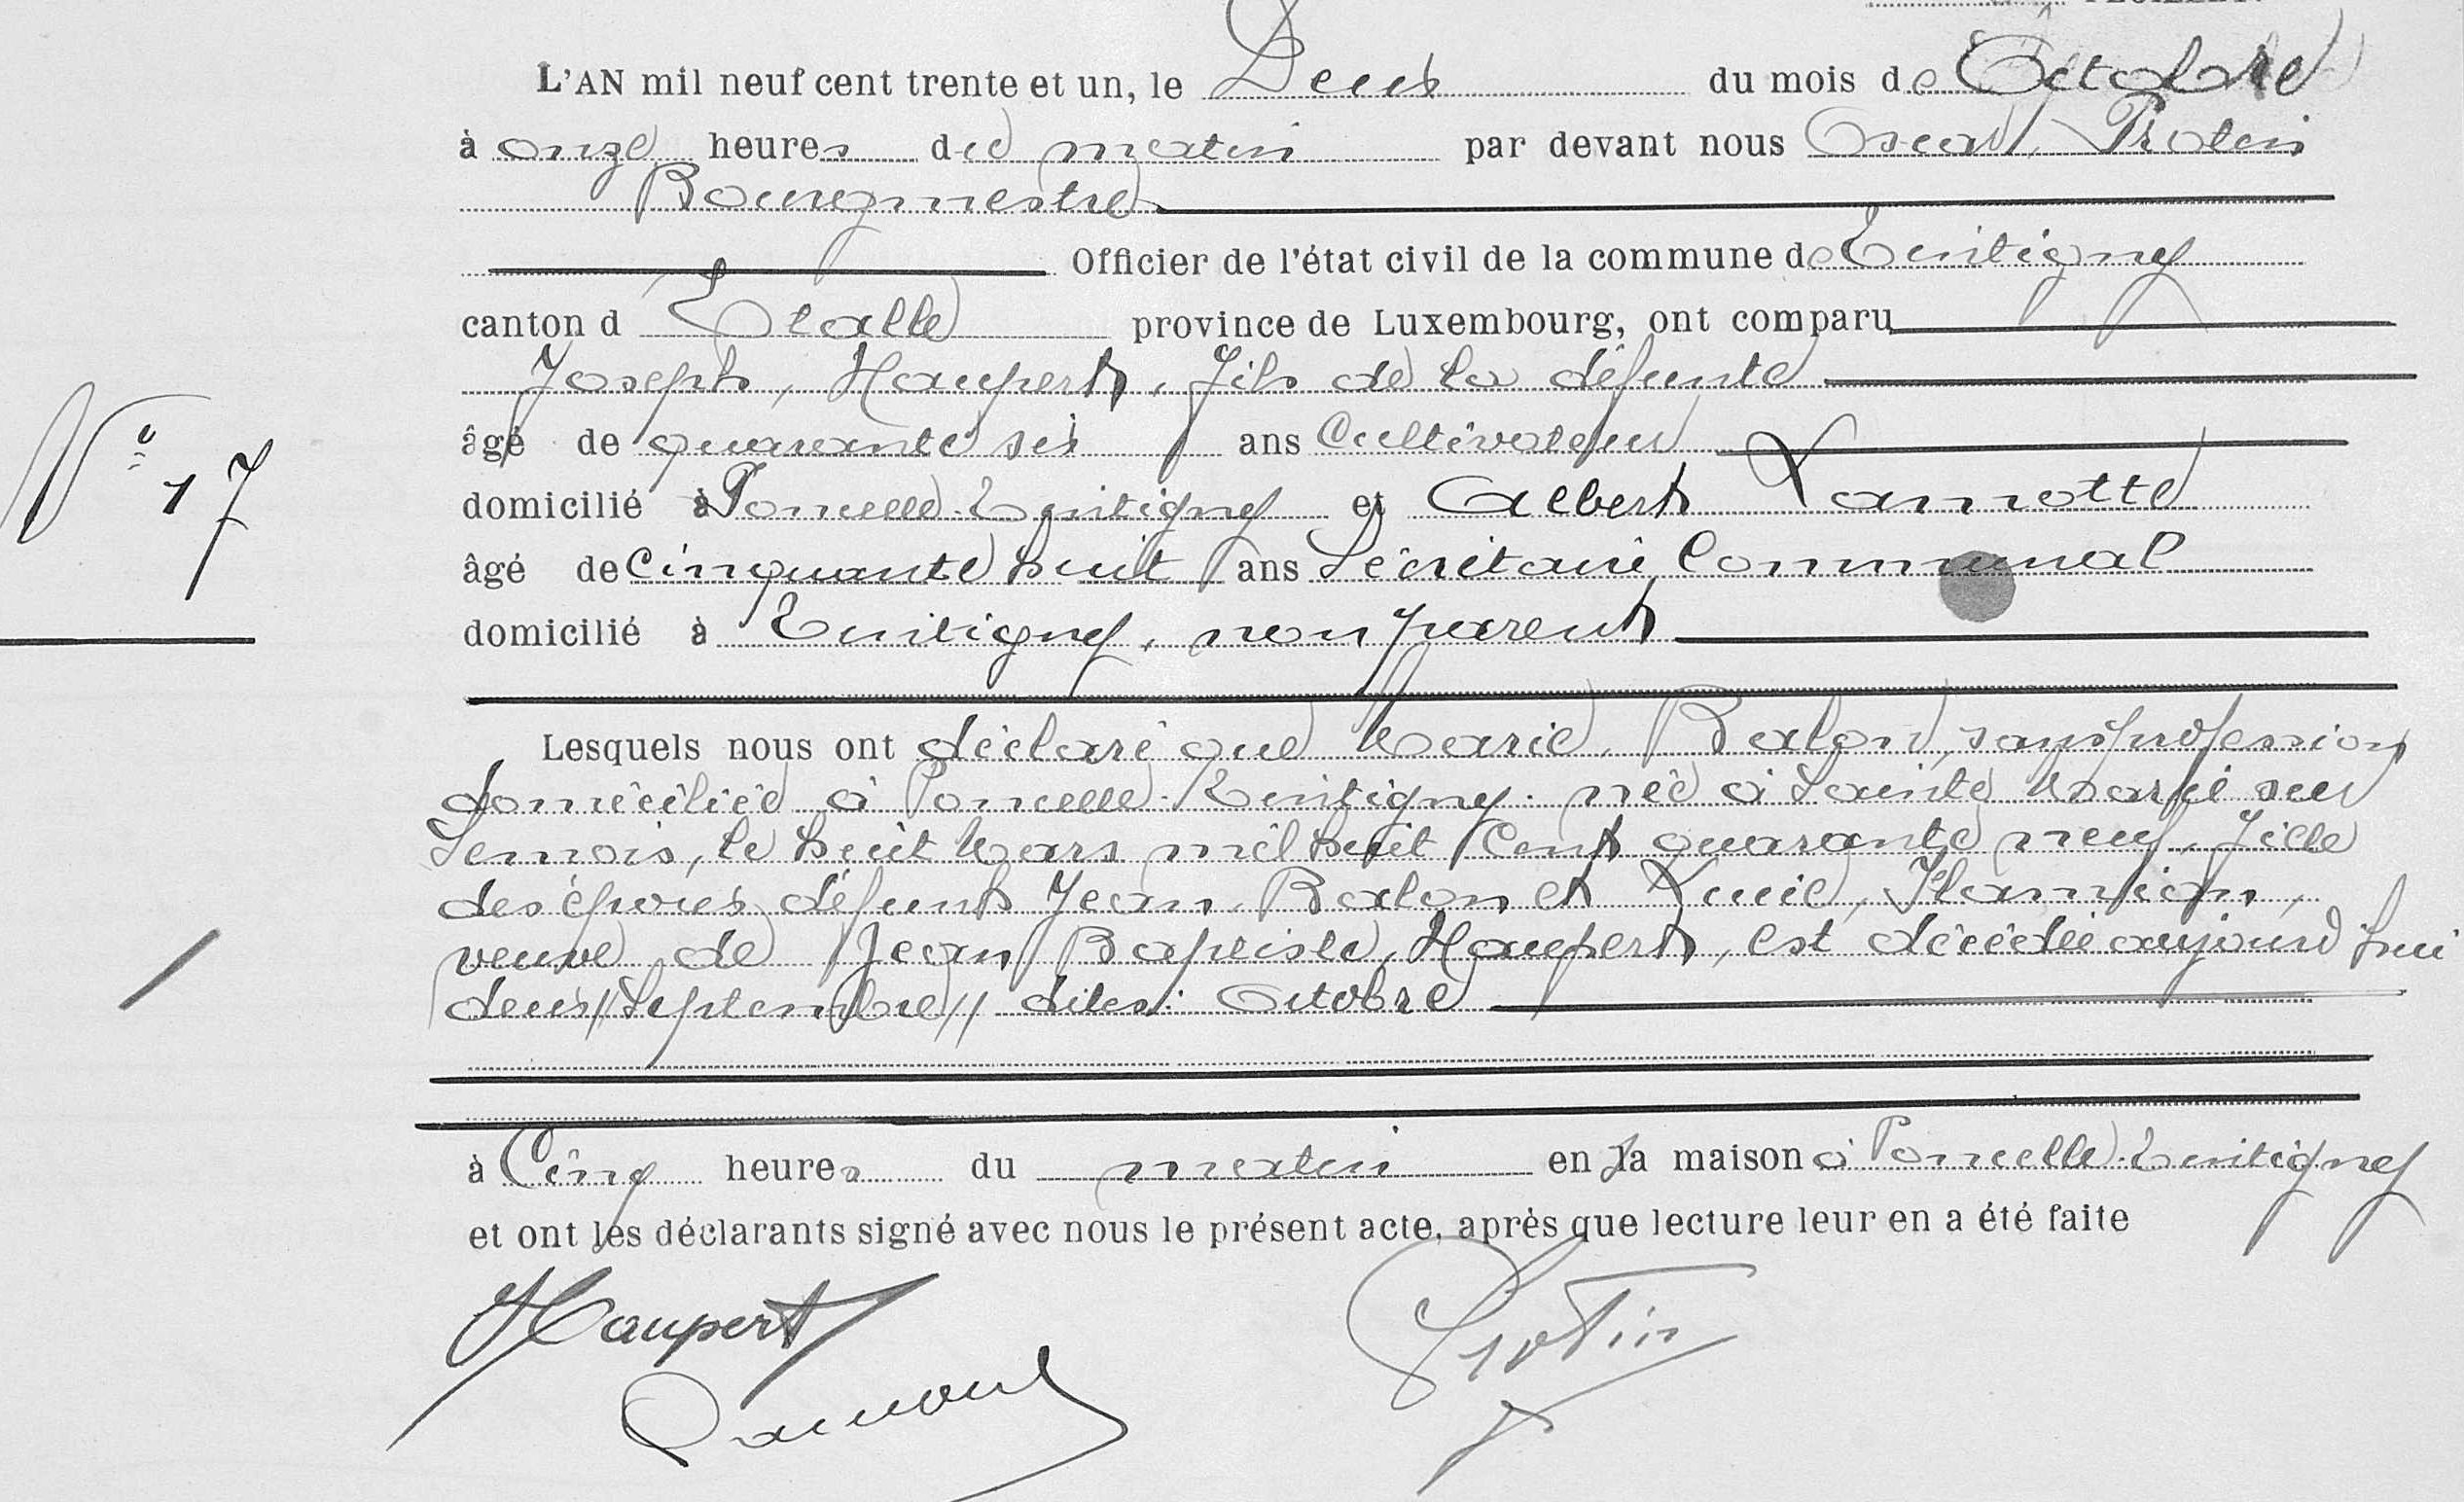 L'AN mil neuf cent trente et un, le Deux du mois de Octobre
à onze heures du matin par devant nous Oscar, Protin
Bourgmestre
Officier de l'état civil de la commune de Tintigny
canton d Etalle province de Luxembourg, ont comparu
Joseph, Haupert, fils de la défunte
âgé de quarante six ans Cultivateur
domicilié à Poncelle-Tintigny et Albert Lamotte
N° 17
âgé de cinquante huit ans Secrétaire Communal
domicilié à Tintigny, non parent
Lesquels nous ont déclaré que Marie, Balon, sans profession
domiciliée à Poncelle-Tintigny. née à Sainte Marie sur
Semois, le huit Mars mil huit Cent quarante neuf, fille
des époux défunts Jean, Balon et
veuve de Jean Baptiste, Haupert, est décédée aujourd'hui
deux//Septembre// dites: Octobre
à Cinq heures du matin en la maison à Poncelle-Tintigny
et ont les déclarants signé avec nous le présent acte, après que lecture leur en a été faite
Haupert
Protin